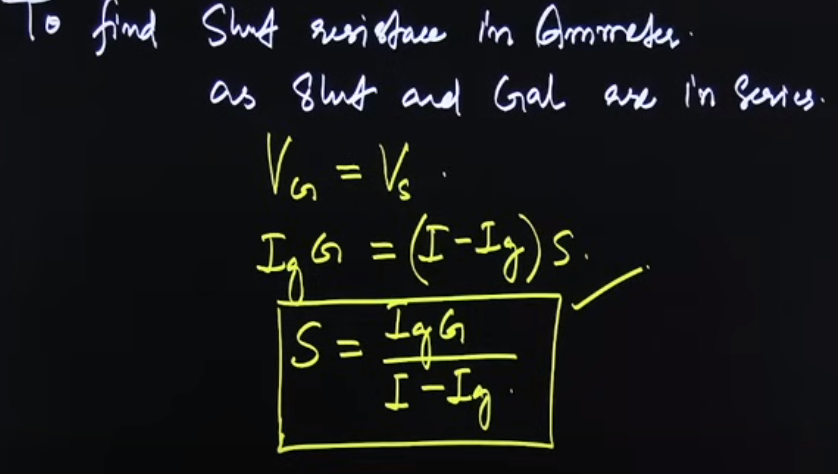 To find Shut resistace in Ammeter.
as Shut and Gal are in Series.
V_G = V_s.
I_g G = (I - I_g) S.
S = I_g G / I - I_g.